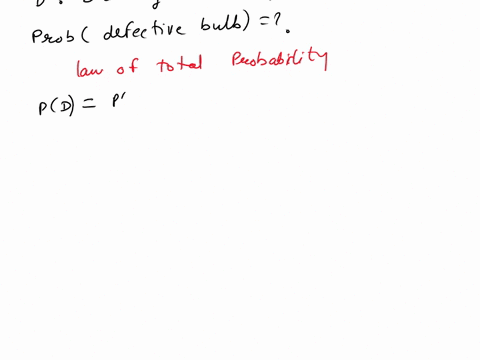 Prob( defective bulb) = ?.
law of total Probability
P(D) = P'